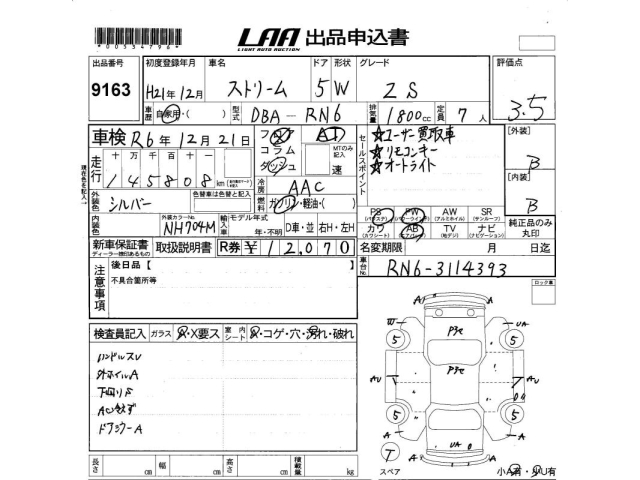 *00534796*
LAA 出品申込書
LIGHT AUTO AUCTION
出品番号 初度登録年月 車名 ドア 形状 グレード 評価点
9163 H21年12月 ストリーム 5 W ZS 3.5
車歴 自家用・( ) 型式 DBA-RN6 排気量 1800cc 定員 7人
車検 R6年12月21日 フロア AT
コラム MTのみ記入
ダッシュ 速
セールスポイント
☆ユーザー買取車
☆リモコンキー
☆オートライト
[外装]
B
[内装]
B
走行 十万 万 千 百 十 一
145808km
現在色を記入
外装色 シルバー 色替車は色替と記入
冷房 AAC
燃料 ガソリン・軽油・( )
PS PW AW SR
(パワステ) (パワーウインドウ) (アルミホイル) (サンルーフ)
カワ AB TV ナビ
(カワシート) (エアバッグ) (地デジ) (ナビゲーション)
純正品のみ丸印
内装色 外装カラーNo. NH704M 輸入車 モデル年式 年・不明 D車・並 右H・左H
新車保証書 取扱説明書 R券 ¥12,070
ディーラー捺印あるもの
名変期限 月 日迄
車台No. RN6-3114393
注意事項 後日品【 】
不具合箇所等
ロック車
検査員記入 ガラス A・X要ス 室内シート A・コゲ・穴・汚れ・破れ
ハンドルスレ
外ホイルA
下回りS
ドアミラーA
長さ cm 幅 cm 高さ cm 積載量 kg
A A
W UA
5 5
Pテセ
Pテセ
AU AU
5 5
A UA A
A A
T
スペア 小A有・小U有